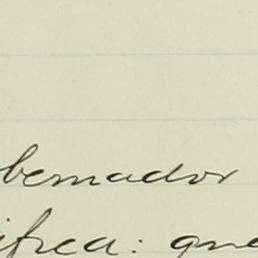 obernador
ifica: que